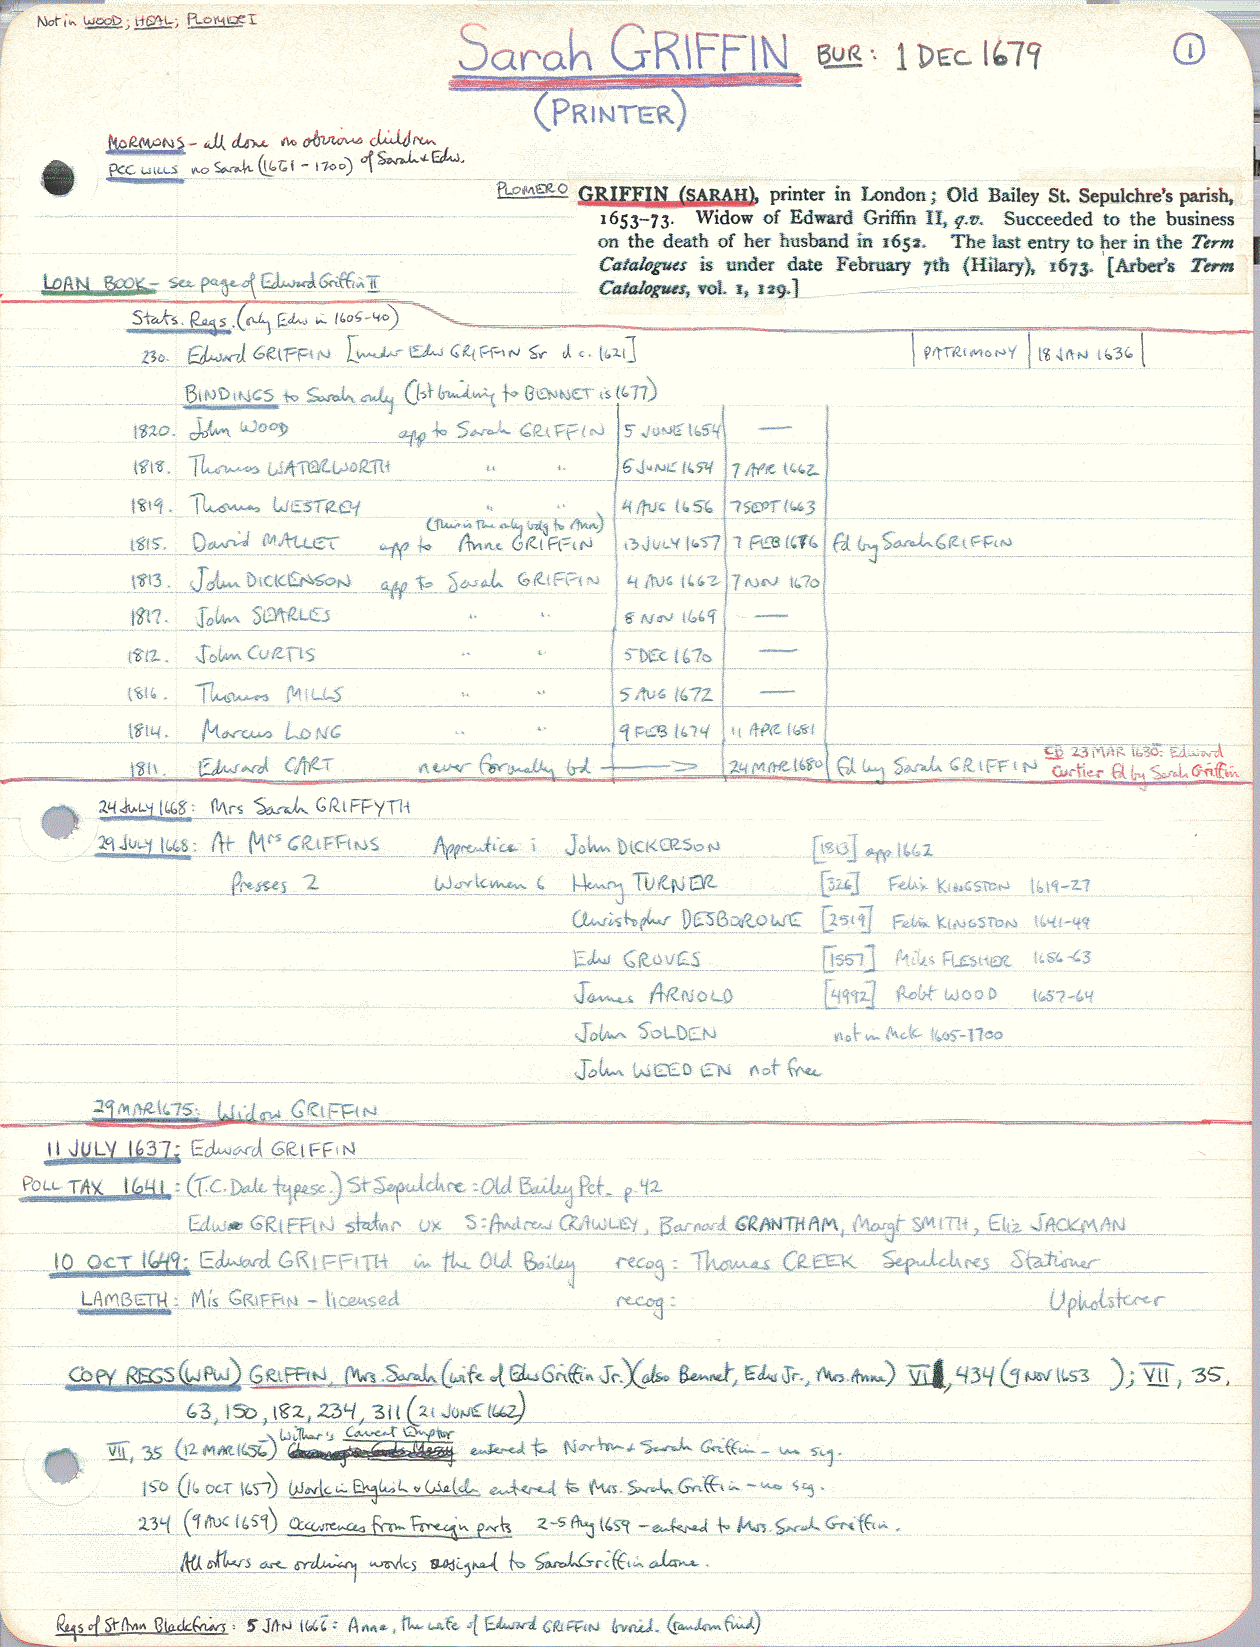 Not in WOOD; HEAL; PLOMER I
Sarah GRIFFIN BUR: 1 DEC 1679
1
(PRINTER)
MORMONS - all done no obvious children of Sarah & Edw.
PCC WILLS no Sarah (1661-1700)
PLOMER O GRIFFIN (SARAH), printer in London; Old Bailey St. Sepulchre's parish,
1653-73. Widow of Edward Griffin II, q.v. Succeeded to the business
on the death of her husband in 1652. The last entry to her in the Term
Catalogues is under date February 7th (Hilary), 1673. [Arber's Term
Catalogues, vol. 1, 129.]
LOAN BOOK - see page of Edward Griffin II
Stats. Regs. (only Edw in 1605-40)
230. Edward GRIFFIN [under Edw GRIFFIN Sr d c. 1621] PATRIMONY 18 JAN 1636
BINDINGS to Sarah only (1st binding to BENNET is 1677)
1820. John WOOD app to Sarah GRIFFIN 5 JUNE 1654 —
1818. Thomas WATERWORTH " " 5 JUNE 1654 7 APR 1662
1819. Thomas WESTREY " " 4 AUG 1656 7 SEPT 1663
(This is the only bdg to Ann)
1815. David MALLET app to Anne GRIFFIN 13 JULY 1657 7 FEB 1676 fd by Sarah GRIFFIN
1813. John DICKENSON app to Sarah GRIFFIN 4 AUG 1662 7 NOV 1670
1817. John SEARLES " " 8 NOV 1669 —
1812. John CURTIS " " 5 DEC 1670 —
1816. Thomas MILLS " " 5 AUG 1672 —
1814. Marcus LONG " " 9 FEB 1674 11 APR 1681
1811. Edward CART never formally bd → 24 MAR 1680 fd by Sarah GRIFFIN
CB 23 MAR 1680: Edward
Curtier fd by Sarah Griffin
24 July 1668: Mrs Sarah GRIFFYTH
29 JULY 1668: At Mrs GRIFFINS Apprentice i John DICKERSON [1813] app 1662
Presses 2 Workmen 6 Henry TURNER [326] Felix KINGSTON 1619-27
Christopher DESBOROWE [2519] Felix KINGSTON 1641-49
Edw GROVES [1557] Miles FLESHER 1656-63
James ARNOLD [4992] Robt WOOD 1657-64
John SOLDEN not in McK 1605-1700
John WEEDEN not free
29 MAR 1675: Widow GRIFFIN
11 JULY 1637: Edward GRIFFIN
POLL TAX 1641: (T.C. Dale typesc.) St Sepulchre: Old Bailey Pct. p. 42
Edw GRIFFIN statnr ux S: Andrew CRAWLEY, Barnard GRANTHAM, Margt SMITH, Eliz JACKMAN
10 OCT 1649: Edward GRIFFITH in the Old Bailey recog: Thomas CREEK Sepulchres Stationer
LAMBETH: Mis GRIFFIN - licensed recog: Upholsterer
COPY REGS (WPW) GRIFFIN, Mrs. Sarah (wife of Edw Griffin Jr.) (also Bennet, Edw Jr., Mrs. Anne) VI, 434 (9 NOV 1653 ); VII, 35,
63, 150, 182, 234, 311 (21 JUNE 1662)
VII, 35 (12 MAR 1656) Wither's Caveat Emptor entered to Norton & Sarah Griffin - no sig.
150 (16 OCT 1657) Work in English & Welch entered to Mrs. Sarah Griffin - no sig.
234 (9 AUG 1659) Occurences from Foreign parts 2-5 Aug 1659 - entered to Mrs. Sarah Griffin.
All others are ordinary works assigned to Sarah Griffin alone.
Regs of St Ann Blackfriars: 5 JAN 1666: Anne, the wife of Edward GRIFFIN buried. (random find)